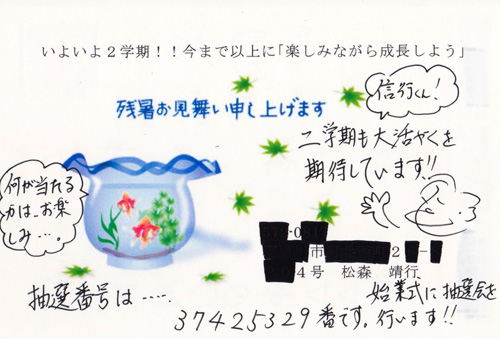 いよいよ2学期!!今まで以上に「楽しみながら成長しよう」
残暑お見舞い申し上げます
信行くん!
二学期も大活やくを
期待しています!!
何が当たる
かは、お楽
しみ…。
市 2 -
4号 松森 靖行
抽選番号は……
始業式に抽選会を
37425329番です。行います!!